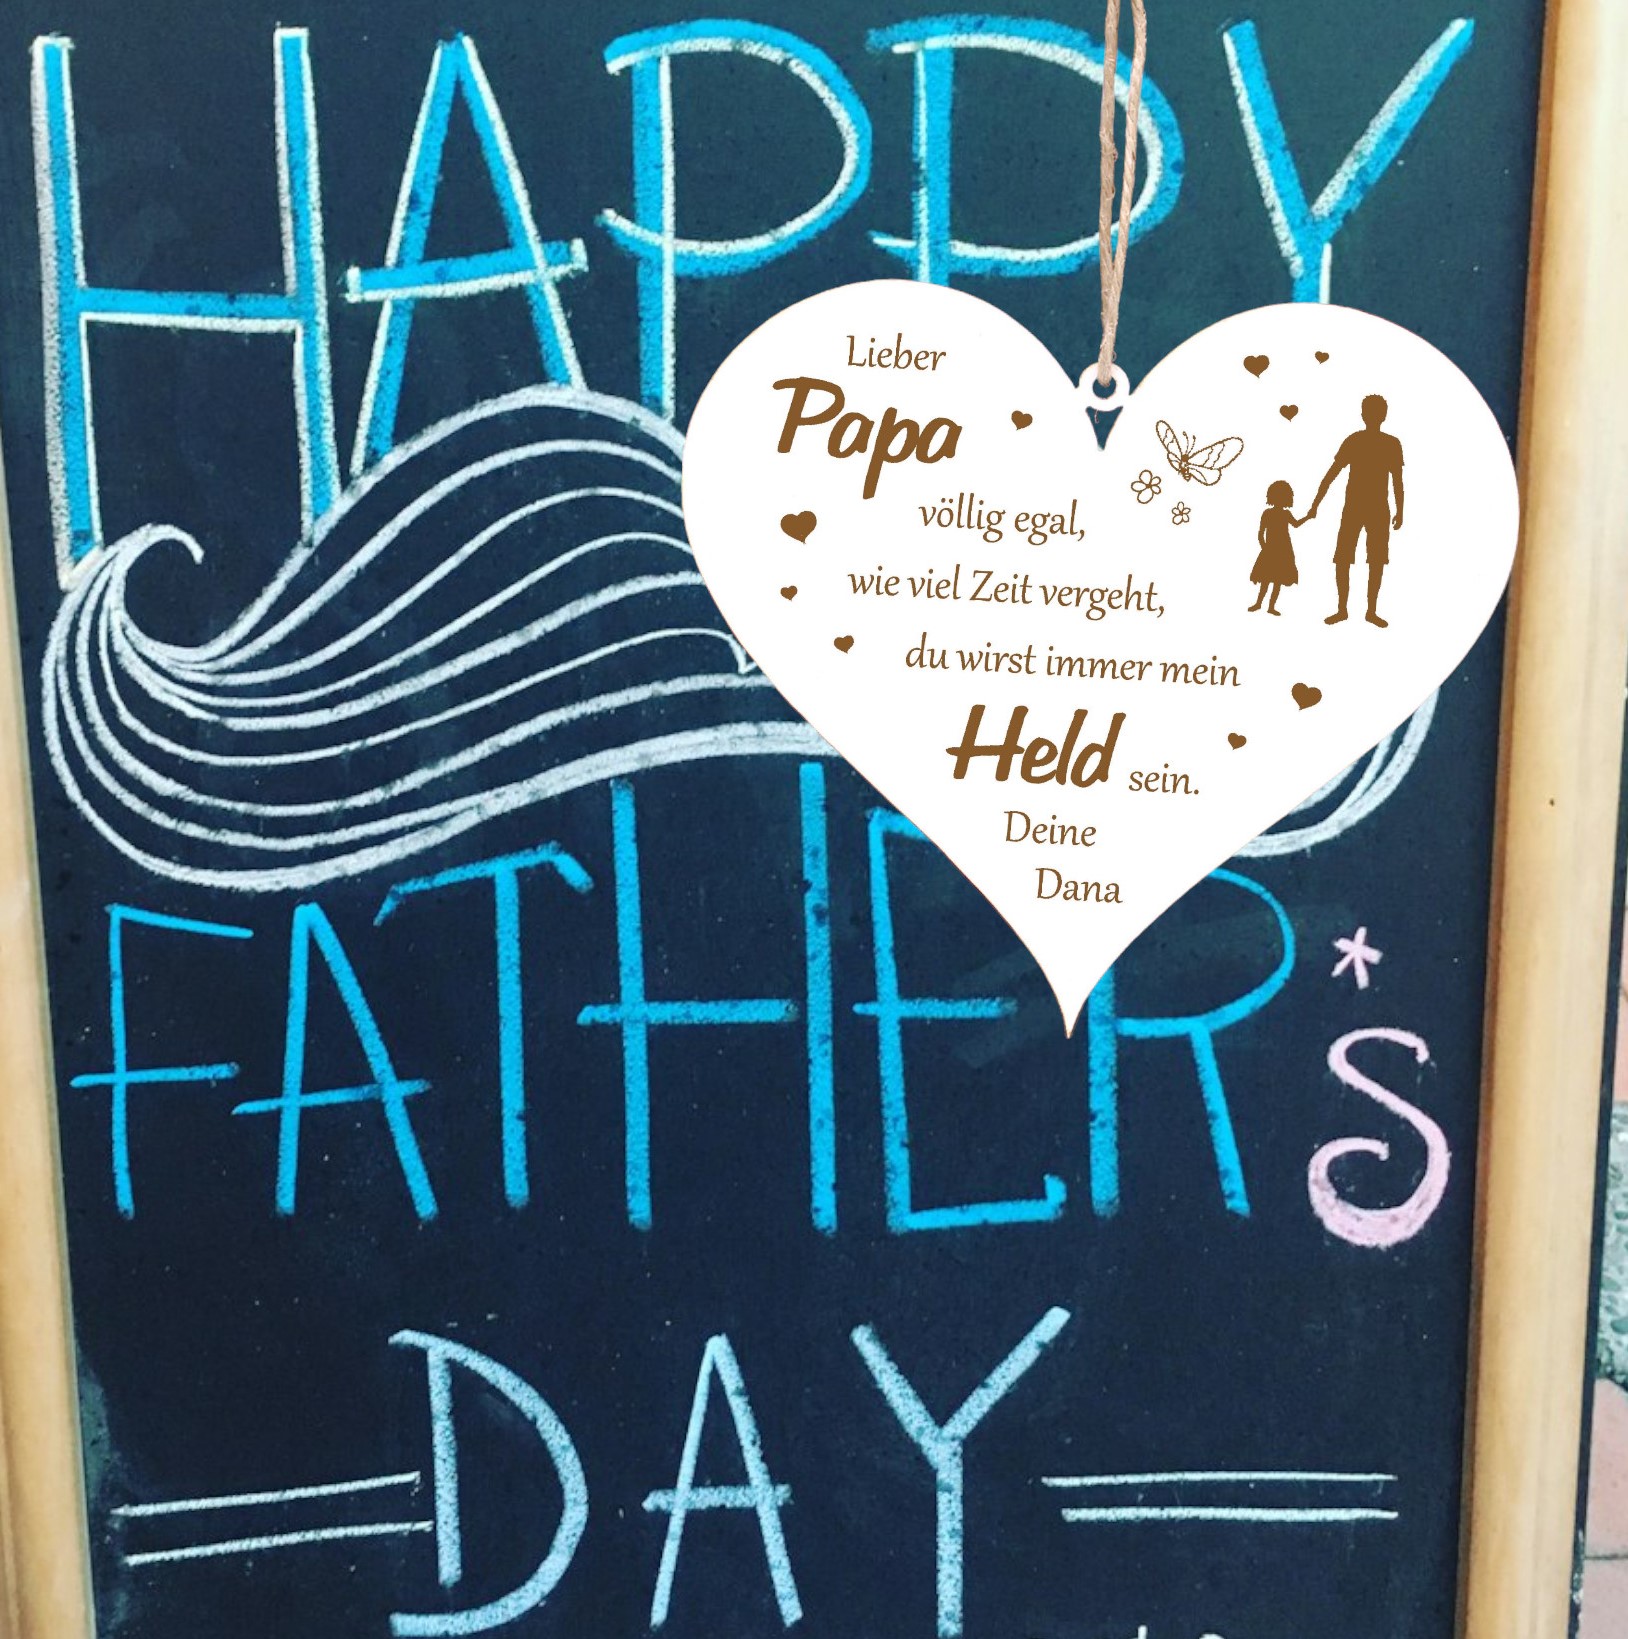 HAPPY
Lieber
Papa
völlig egal,
wie viel Zeit vergeht,
du wirst immer mein
Held sein.
Deine
Dana
FATHER*S
DAY